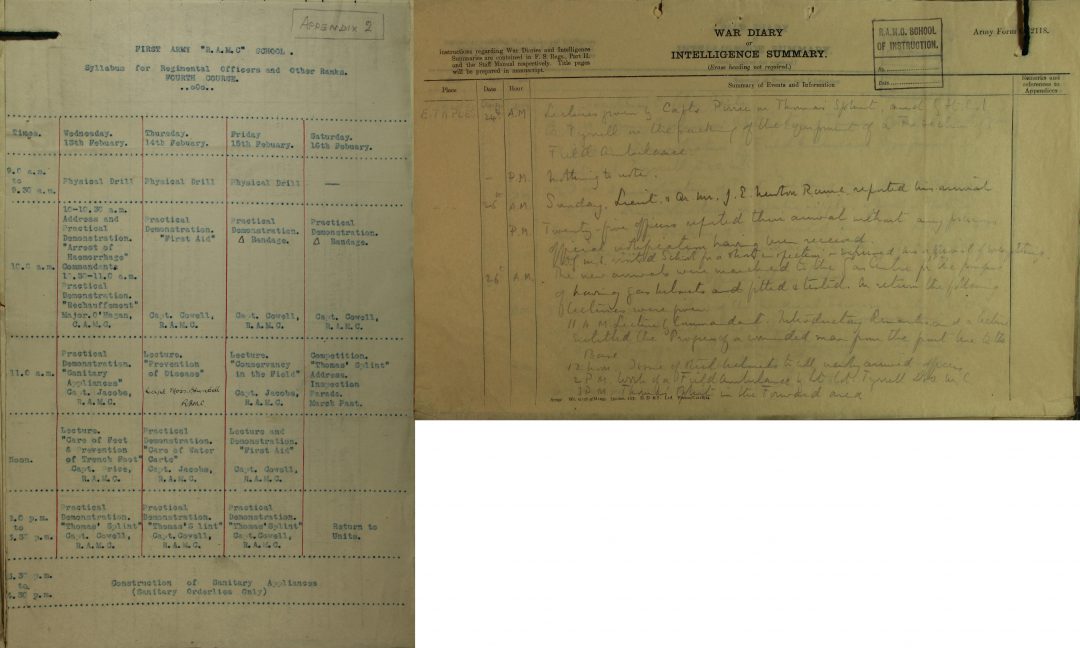 APPENDIX 2
FIRST ARMY "R.A.M.C" SCHOOL.
Syllabus for Regimental Officers and Other Ranks.
FOURTH COURSE.
..oOo..
Times.
Wednesday.
13th Febuary.
Thursday.
14th Febuary.
Friday
15th Febuary.
Saturday.
16th Febuary.
9.0 a.m.
to
9.30 a.m.
Physical Drill
Physical Drill
Physical Drill
—
10.0 a.m.
10-10.30 a.m.
Address and
Practical
Demonstration.
"Arrest of
Haemorrhage"
Commandant.
10.30-11.0 a.m.
Practical
Demonstration.
"Rechauffement"
Major. O'Hagan,
C.A.M.C.
Practical
Demonstration.
"First Aid"
Capt. Cowell,
R.A.M.C.
Practical
Demonstration.
Δ Bandage.
Capt. Cowell,
R.A.M.C.
Practical
Demonstration.
Δ Bandage.
Capt. Cowell,
R.A.M.C.
11.0 a.m.
Practical
Demonstration.
"Sanitary
Appliances"
Capt. Jacobs,
R.A.M.C.
Lecture.
"Prevention
of Disease"
Capt Moss-Blundell
RAMC
Lecture.
"Conservancy
in the Field"
Capt. Jacobs,
R.A.M.C.
Competition.
"Thomas' Splint"
Address.
Inspection
Parade.
March Past.
Noon.
Lecture.
"Care of Feet
& Prevention
of Trench Foot"
Capt. Price,
R.A.M.C.
Practical
Demonstration.
"Care of Water
Carts"
Capt. Jacobs,
R.A.M.C.
Lecture and
Demonstration.
"First Aid"
Capt. Cowell,
R.A.M.C.
to
p.m.
Practical
Demonstration.
"Thomas' Splint"
Capt. Cowell,
R.A.M.C.
Practical
Demonstration.
"Thomas'S lint"
Capt.Cowell,
R.A.M.C.
Practical
Demonstration.
"Thomas'Splint"
Capt.Cowell,
R.A.M.C.
Return to
Units.
p.m.
to
4.30 p.m.
Construction of Sanitary Appliances
(Sanitary Orderlies Only)
WAR DIARY
or
INTELLIGENCE SUMMARY.
(Erase heading not required.)
Instructions regarding War Diaries and Intelligence
Summaries are contained in F. S. Regs., Part II.
and the Staff Manual respectively. Title pages
will be prepared in manuscript.
R.A.M.C. SCHOOL
OF INSTRUCTION.
No.
Date
Army Form 2118.
Place
Date
Hour
Summary of Events and Information
Remarks and
references to
Appendices
ETAPLES
24 A.M. Lectures given by Capts Pirrie on Thomas Splint, and Lt. Col
Tyrrell on the packing of the equipment of a Section of a
Field Ambulance.
— P.M. Nothing to note.
25 A.M. Sunday. Lieut. & Qr. Mr. J. E. Newton Ramc reported his arrival
P.M. Twenty-five officers reported their arrival without any previous
official notification having been received.
visited School for a short inspection
26 A.M. The new arrivals were marched to the Gas Centre for the purpose
of having gas helmets and fitted & tested. On return the following
lectures were given.
11 A.M. Lecture by Commandant. Introductory Remarks and a lecture
entitled the Progress of a wounded man from the front line to the
Base
12 noon Issue of Steel helmets to all newly arrived officers
2 P.M. Work of a Field Ambulance by Lt. Col. Tyrrell
3 P.M. Thomas Splint in the Forward area